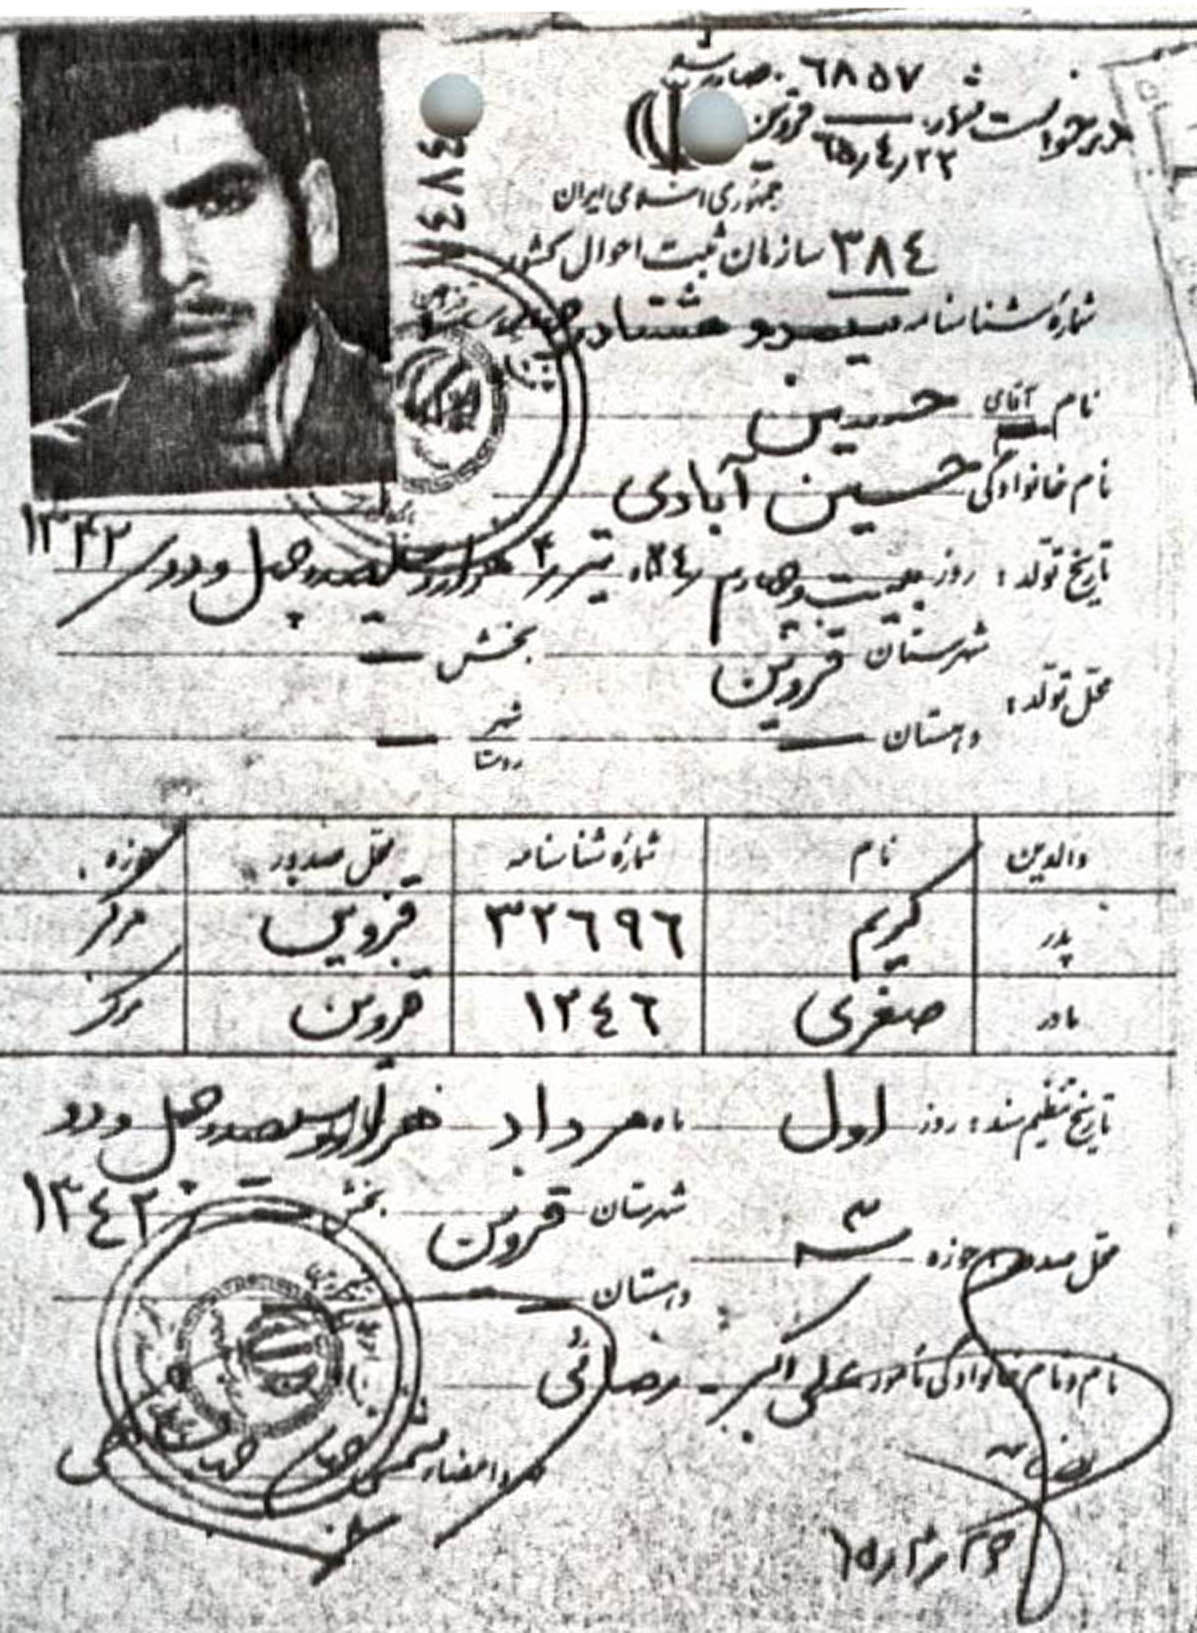 درخواست شماره ۶۸۵۷ صادر شد
۶۵٫۴٫۲۲ قزوین
۳۸۴
جمهوری اسلامی ایران
۳۸۴ سازمان ثبت احوال کشور
شمارهٔ شناسنامه سیصدو هشتادو چهار
نام آقای حسین
نام خانوادگی حسین آبادی
تاریخ تولد: روز بیست و چهارم ۲۴ ماه تیر ۴ هزارو سیصدو چهل و دو ۱۳۴۲
محل تولد: شهرستان قزوین بخش —
دهستان — شهر روستا —
والدین نام شمارهٔ شناسنامه محل صدور حوزه
پدر کریم ۳۲۶۹۶ قزوین مرکز
مادر صغری ۱۲۴۶ قزوین مرکز
تاریخ تنظیم سند: روز اول ماه مرداد هزارو سیصدو چهل و دو
۱۳۴۲
محل صدور حوزه ۳ شهرستان قزوین بخش —
دهستان —
نام و نام خانوادگی مامور علی اکبر - رضائی
مهر و امضاء